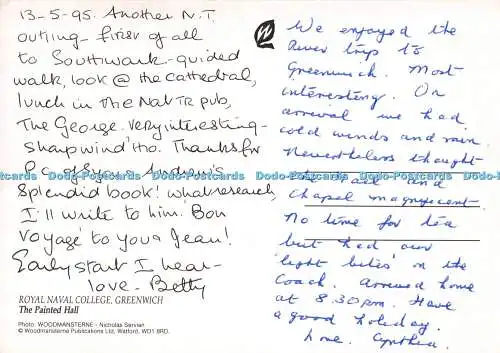 13-5-95. Another N.T.
outing - first of all
to Southwark - guided
walk, look @ the cathedral,
lunch in the Nat TR pub,
The George. Very interesting -
sharp wind tho. Thanks for
P.C. of
splendid book! what research,
I'll write to him. Bon
Voyage to you & Jean!
Early start I hear -
love - Betty
ROYAL NAVAL COLLEGE, GREENWICH
The Painted Hall
Photo: WOODMANSTERNE - Nicholas Servian
© Woodmansterne Publications Ltd, Watford, WD1 8RD.
We enjoyed the
River trip to
Greenwich. Most
interesting. On
arrival we had
cold winds and rain.
Nevertheless thought
the Hall and
Chapel magnificent.
No time for tea
but had our
'light bites' on the
Coach. Arrived home
at 8.30pm. Have
a good holiday.
Love. Cynthia.
Dodo-Postcards Dodo-Postcards Dodo-Postcards Dodo-Postcards Dodo-Postcards Dodo-Postcards